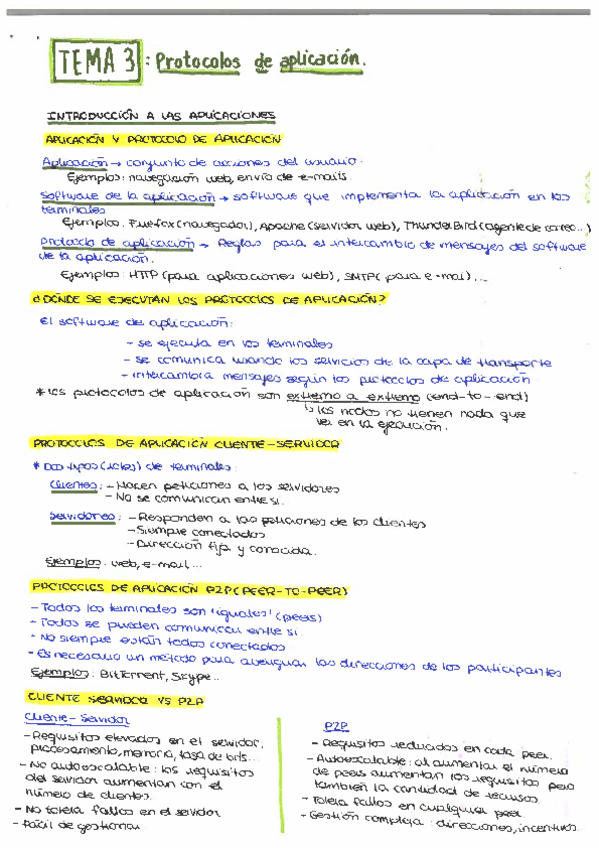 TEMA 3: Protocolos de aplicación.
INTRODUCCIÓN A LAS APLICACIONES
APLICACIÓN Y PROTOCOLO DE APLICACIÓN
Aplicación → conjunto de acciones del usuario.
Ejemplos: navegación web, envío de e-mails.
Software de la aplicación → software que implementa la aplicación en los
terminales
Ejemplos. Firefox (navegador), Apache (servidor web), ThunderBird (agente de correo...)
Protocolo de aplicación → Reglas para el intercambio de mensajes del software
de la aplicación.
Ejemplos: HTTP (para aplicaciones web), SMTP( para e-mail)...
¿DÓNDE SE EJECUTAN LOS PROTOCOLOS DE APLICACIÓN?
El software de aplicación:
- se ejecuta en los terminales
- se comunica usando los servicios de la capa de transporte
- intercambia mensajes según los protocolos de aplicación
* los protocolos de aplicación son extremo a extremo (end-to-end)
↳ los nodos no tienen nada que
ver en la ejecución.
PROTOCOLOS DE APLICACIÓN CLIENTE-SERVIDOR
* Dos tipos (roles) de terminales:
Clientes: - Hacen peticiones a los servidores
- No se comunican entre si.
Servidores: - Responden a las peticiones de los clientes
- Siempre conectados
- Dirección fija y conocida.
Ejemplos: web, e-mail...
PROTOCOLOS DE APLICACIÓN P2P (PEER-TO-PEER)
- Todos los terminales son "iguales" (peers)
- Todos se pueden comunicar entre si.
- No siempre están todos conectados
- Es necesario un método para averiguar las direcciones de los participantes
Ejemplos: BitTorrent, Skype...
CLIENTE SERVIDOR VS P2P
Cliente-Servidor
- Requisitos elevados en el servidor:
procesamiento, memoria, tasa de bits...
- No autoescalable: los requisitos
del servidor aumentan con el
número de clientes.
- No tolera fallos en el servidor
- Fácil de gestionar
P2P
- Requisitos reducidos en cada peer.
- Autoescalable: al aumentar el número
de peers aumentan los requisitos pero
también la cantidad de recursos.
- Tolera fallos en cualquier peer.
- Gestión compleja: direcciones, incentivos.